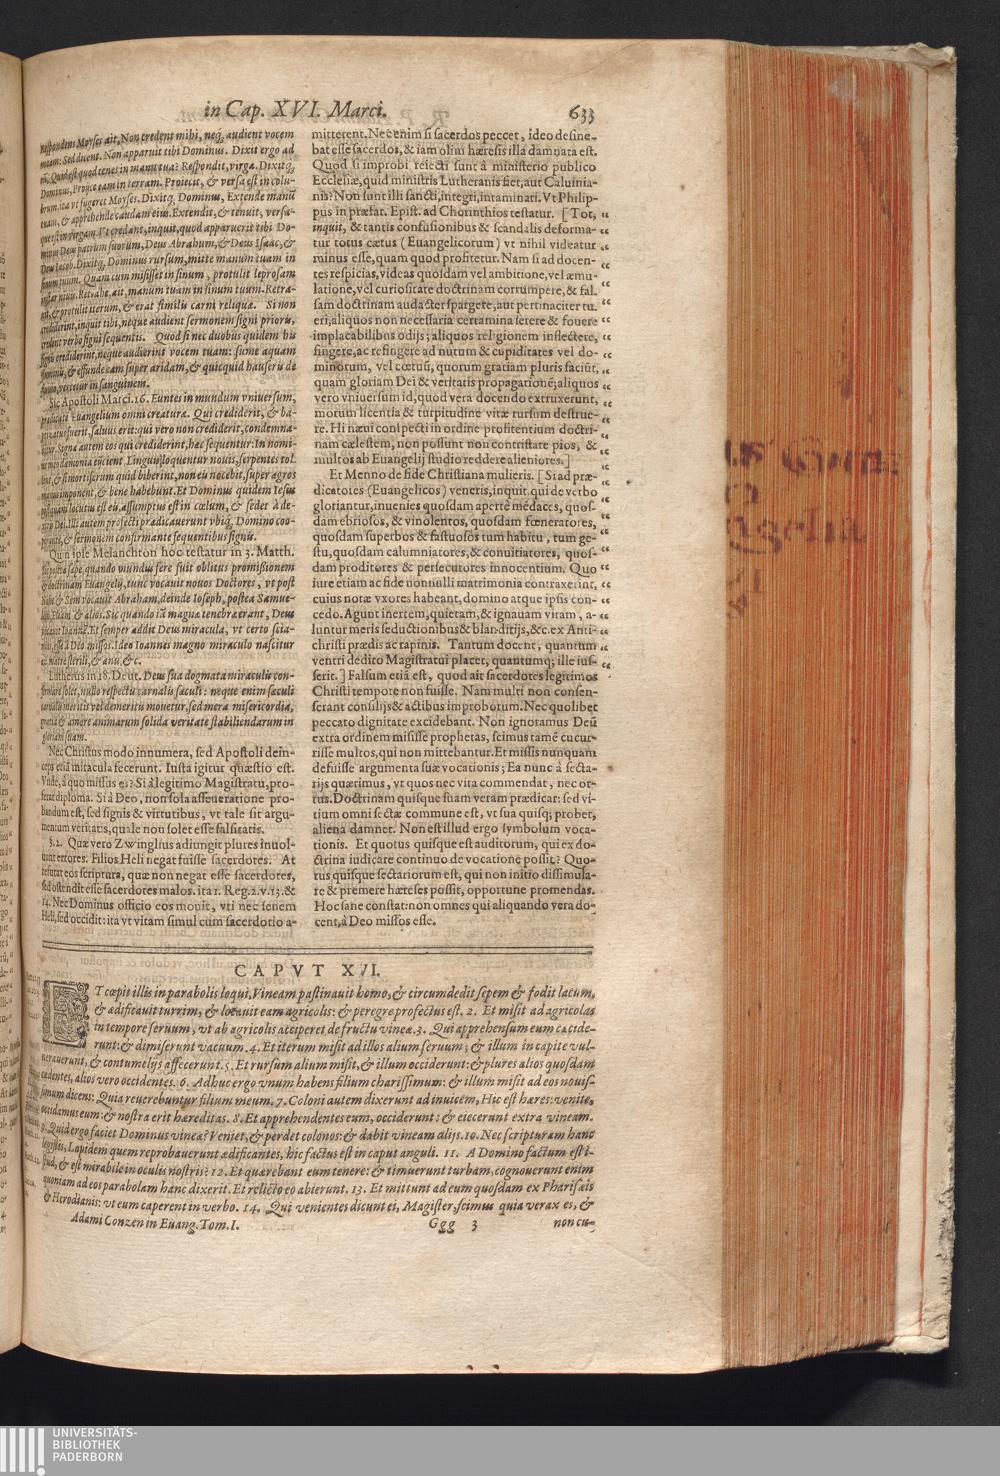 in Cap. XVI. Marci. 633
Respondens Moyses ait, Non credent mihi, neq; audient vocem
meam: Sed dicent. Non apparuit tibi Dominus. Dixit ergo ad
eū, Quid est quod tenes in manu tua? Respondit, virga. Dixitq,
Dominus, Proijce eam in terram. Proiecit, & versa est in colu-
brum, ita vt fugeret Moyses. Dixitq, Dominus, Extende manū
tuam, & apprehende caudam eius. Extendit, & tenuit, versa-
que est in virgam. Vt credant, inquit, quod apparuerit tibi Do-
minus Deus patrum suorum, Deus Abrahum, & Deus Isaac, &
Deus Iacob. Dixitq, Dominus rursum, mitte manum tuam in
sinum tuum. Quam cum misisset in sinum, protulit leprosam
instar niuis. Retrahe, ait, manum tuam in sinum tuum. Retra-
xit, & protulit iterum, & erat similis carni reliquæ. Si non
crediderint, inquit tibi, neque audient sermonem signi prioris,
credent verbo signi sequentis. Quod si nec duobus quidem his
signis crediderint, neque audierint vocem tuam: sume aquam
fluminis, & effunde eam super aridam, & quicquid hauseris de
fluuio, vertetur in sanguinem.
Sic Apostoli Marci. 16. Euntes in mundum vniuersum,
prædicate Euangelium omni creaturæ. Qui crediderit, & ba-
ptizatus fuerit, saluus erit: qui vero non crediderit, condemna-
bitur. Signa autem eos qui crediderint, hæc sequentur: In nomi-
ne meo dæmonia eijcient. Linguis loquentur nouis, serpentes tol-
lent, & si mortiferum quid biberint, non eis nocebit, super ægros
manus imponent, & bene habebunt. Et Dominus quidem Iesus
postquam locutus est eis, assumptus est in cœlum, & sedet à de-
xtris Dei. Illi autem profecti prædicauerunt vbiq, Domino coo-
perante, & sermonem confirmante sequentibus signis.
Quin ipse Melanchton hoc testatur in 3. Matth.
Sic postea sæpe, quando mundus fere fuit oblitus promissionem
& doctrinam Euangelij, tunc vocauit nouos Doctores, vt post
Nohe & Sem vocauit Abraham, deinde Ioseph, postea Samue-
lem, Eliam & alios. Sic quando iā magnæ tenebræ erant, Deus
vocauit Ioannē. Et semper addit Deus miracula, vt certo scia-
mus, esse à Deo missos. Ideo Ioannes magno miraculo nascitur
ex matre sterili, & anu, &c.
Lutherus in 18. Deut. Deus sua dogmata miraculis con-
firmare solet, nullo respectu carnalis sæculi: neque enim sæculi
carnalis meritis vel demeritis mouetur, sed mera misericordia,
gratia & amore animarum solida veritate stabiliendarum in
gloriam suam.
Nec Christus modo innumera, sed Apostoli dein-
ceps etiā miracula fecerunt. Iusta igitur quæstio est.
Vnde, à quo missus es? Si à legitimo Magistratu, pro-
ferat diploma. Si à Deo, non sola asseueratione pro-
bandum est, sed signis & virtutibus, vt tale sit argu-
mentum veritatis, quale non solet esse falsitatis.
§. 2. Quæ vero Zwinglius adiungit plures inuol-
uunt errores. Filios Heli negat fuisse sacerdotes. At
refutat eos scriptura, quæ non negat esse sacerdotes,
sed ostendit esse sacerdotes malos. ita 1. Reg. 2. v. 13. &
14. Nec Dominus officio eos monit, vti nec senem
Heli, sed occidit: ita vt vitam simul cum sacerdotio a-
mitterent. Nec enim si sacerdos peccet, ideo desine-
bat esse sacerdos, & iam olim hæresis illa damnata est.
Quod si improbi reiecti sunt à ministerio publico
Ecclesiæ, quid ministris Lutheranis fiet, aut Caluinia-
nis? Non sunt illi sancti, integri, intaminati. Vt Philip-
pus in præfat. Epist. ad Chorinthios testatur. [Tot,
inquit, & tantis confusionibus & scandalis deforma-
tur totus cœtus (Euangelicorum) vt nihil videatur
minus esse, quam quod profitetur. Nam si ad docen-
tes respicias, videas quosdam vel ambitione, vel æmu-
latione, vel curiositate doctrinam corrumpere, & fal-
sam doctrinam audacter spargere, aut pertinaciter tu-
eri; aliquos non necessaria certamina serere & fouere
implacabilibus odijs; aliquos religionem inflectere,
fingere, ac refingere ad nutum & cupiditates vel do-
minorum, vel cœtuū, quorum gratiam pluris faciūt,
quam gloriam Dei & veritatis propagationē; aliquos
vero vniuersum id, quod vera docendo extruxerunt,
morum licentia & turpitudine vitæ rursum destrue-
re. Hi nævi conspecti in ordine profitentium doctri-
nam cælestem, non possunt non contristare pios, &
multos ab Euangelij studio reddere alieniores.]
Et Menno de fide Christiana mulieris. [Si ad præ-
dicatores (Euangelicos) veneris, inquit. qui de verbo
gloriantur, inuenies quosdam apertè mēdaces, quos-
dam ebriosos, & vinolentos, quosdam fœneratores,
quosdam superbos & fastuosos tum habitu, tum ge-
stu, quosdam calumniatores, & conuitiatores, quos-
dam proditores et persecutores innocentium. Quo
iure etiam ac fide nonnulli matrimonia contraxerint,
cuius notæ vxores habeant, domino atque ipsis con-
cedo. Agunt inertem, quietam, & ignauam vitam, a-
luntur meris seductionibus & blanditijs, &c. ex Anti-
christi prædis ac rapinis. Tantum docent, quantum
ventri dedito Magistratui placet, quantumq; ille ius-
serit.] Falsum etiā est, quod ait sacerdotes legitimos
Christi tempore non fuisse. Nam multi non consen-
serant consilijs & actibus improborum. Nec quolibet
peccato dignitate excidebant. Non ignoramus Deū
extra ordinem misisse prophetas, scimus tamē cucur-
risse multos, qui non mittebantur. Et missis nunquam
defuisse argumenta suæ vocationis; Ea nunc à secta-
rijs quærimus, vt quos nec vita commendat, nec or-
tus. Doctrinam quisque suam veram prædicat: sed vi-
tium omni sectæ commune est, vt sua quisq; probet,
aliena damnet. Non est illud ergo symbolum voca-
tionis. Et quotus quisque est auditorum, qui ex do-
ctrina iudicare continuo de vocatione possit? Quo-
tus quisque sectariorum est, qui non initio dissimula-
re & premere hæreses possit, opportune promendas.
Hoc sane constat: non omnes qui aliquando vera do-
cent, à Deo missos esse.
CAPVT XVI.
ET cœpit illis in parabolis loqui, Vineam pastinauit homo, & circumdedit sepem & fodit lacum,
& ædificauit turrim, & locauit eam agricolis: & peregre profectus est. 2. Et misit ad agricolas
in tempore seruum, vt ab agricolis acciperet de fructu vineæ. 3. Qui apprehensum eum cæcide-
runt: & dimiserunt vacuum. 4. Et iterum misit ad illos alium seruum; & illum in capite vul-
nerauerunt, & contumelijs affecerunt. 5. Et rursum alium misit, & illum occiderunt: & plures alios quosdam
cædentes, alios vero occidentes. 6. Adhuc ergo vnum habens filium charissimum: & illum misit ad eos nouis-
simum dicens: Quia reuerebuntur filium meum. 7. Coloni autem dixerunt ad inuicem, Hic est hæres: venite,
occidamus eum: & nostra erit hæreditas. 8. Et apprehendentes eum, occiderunt: & eiecerunt extra vineam.
9. Quid ergo faciet Dominus vineæ? Veniet, & perdet colonos: & dabit vineam alijs. 10. Nec scripturam hanc
legistis, Lapidem quem reprobauerunt ædificantes, hic factus est in caput anguli. 11. A Domino factum est i-
stud, & est mirabile in oculis nostris? 12. Et quærebant eum tenere: & timuerunt turbam, cognouerunt enim
quoniam ad eos parabolam hanc dixerit. Et relicto eo abierunt. 13. Et mittunt ad eum quosdam ex Pharisæis
& Herodianis: vt eum caperent in verbo. 14. Qui venientes dicunt ei, Magister, scimus quia verax es, &
Adami Conzen in Euang. Tom. I. Ggg 3 non cu-
UNIVERSITÄTS-
BIBLIOTHEK
PADERBORN